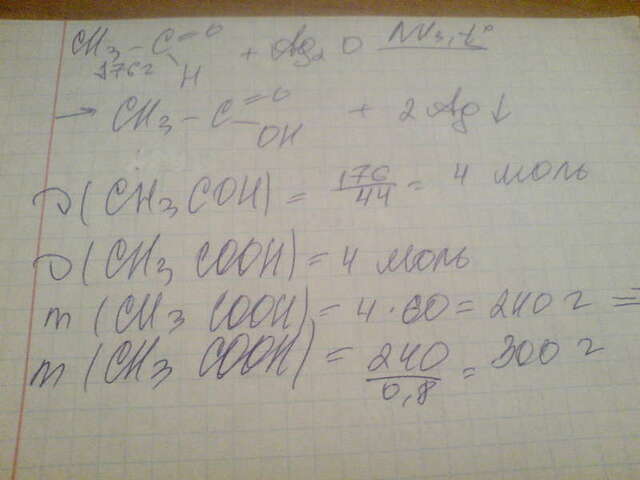 CH₃ – C = O + Ag₂O NH₃, t°
176 г H
→ CH₃ – C = O + 2Ag↓
OH
ν(CH₃COH) = 176/44 = 4 моль
ν(CH₃COOH) = 4 моль
m(CH₃COOH) = 4·60 = 240 г =
m(CH₃COOH) = 240/0,8 = 300 г